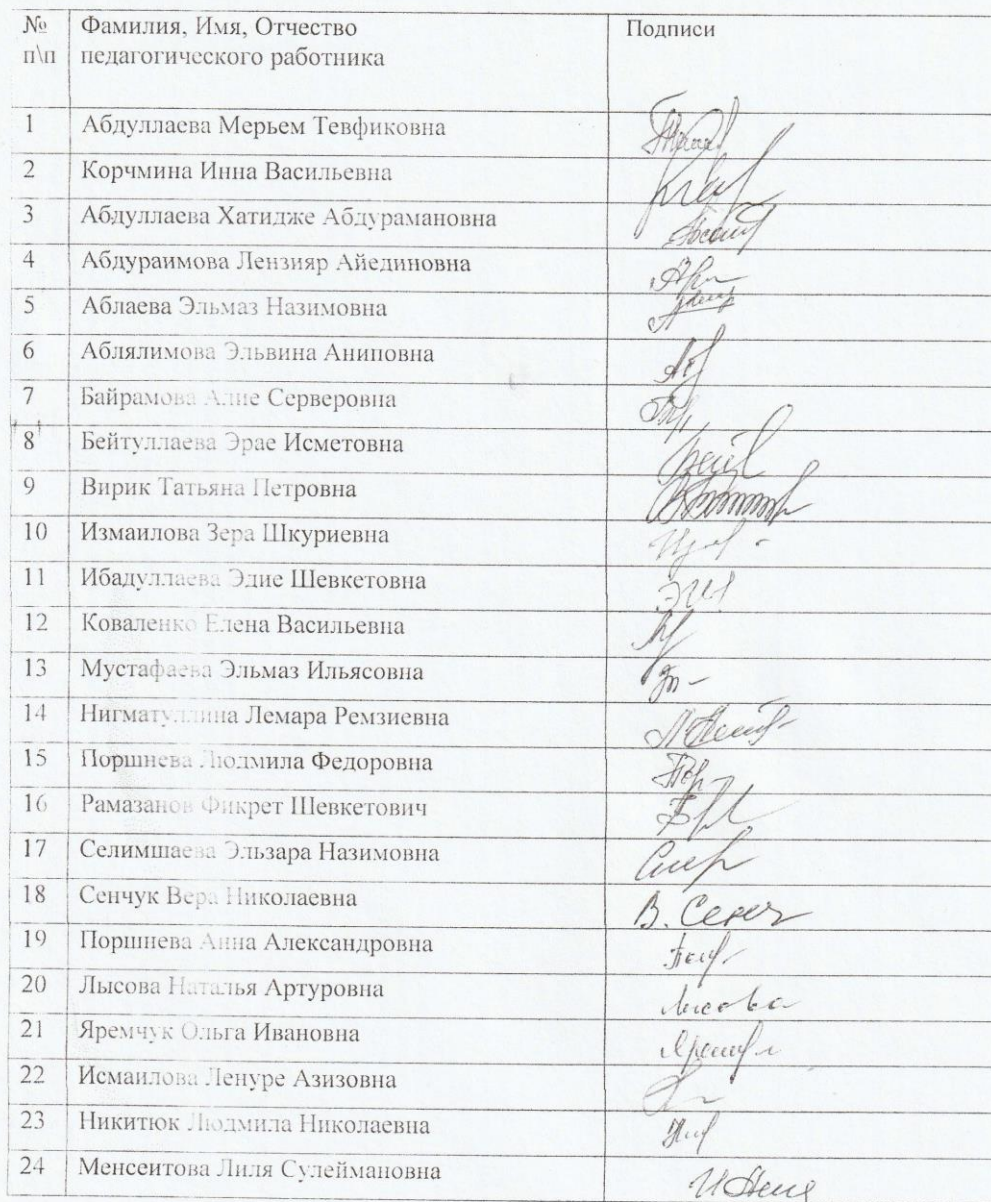 № Фамилия, Имя, Отчество Подписи
п\п педагогического работника
1 Абдуллаева Мерьем Тевфиковна
2 Корчмина Инна Васильевна
3 Абдуллаева Хатидже Абдурамановна
4 Абдураимова Лензияр Айединовна
5 Аблаева Эльмаз Назимовна
6 Аблялимова Эльвина Аниповна
7 Байрамова Алие Серверовна
8 Бейтуллаева Эрае Исметовна
9 Вирик Татьяна Петровна
10 Измаилова Зера Шкуриевна
11 Ибадуллаева Эдие Шевкетовна
12 Коваленко Елена Васильевна
13 Мустафаева Эльмаз Ильясовна
14 Нигматуллина Лемара Ремзиевна
15 Поршнева Людмила Федоровна
16 Рамазанов Фикрет Шевкетович
17 Селимшаева Эльзара Назимовна
18 Сенчук Вера Николаевна
19 Поршнева Анна Александровна
20 Лысова Наталья Артуровна
21 Яремчук Ольга Ивановна
22 Исмаилова Ленуре Азизовна
23 Никитюк Людмила Николаевна
24 Менсеитова Лиля Сулеймановна